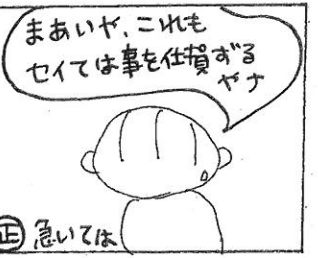 まあいや、これも
セイては事を仕損ずる
やナ
㊣急いては